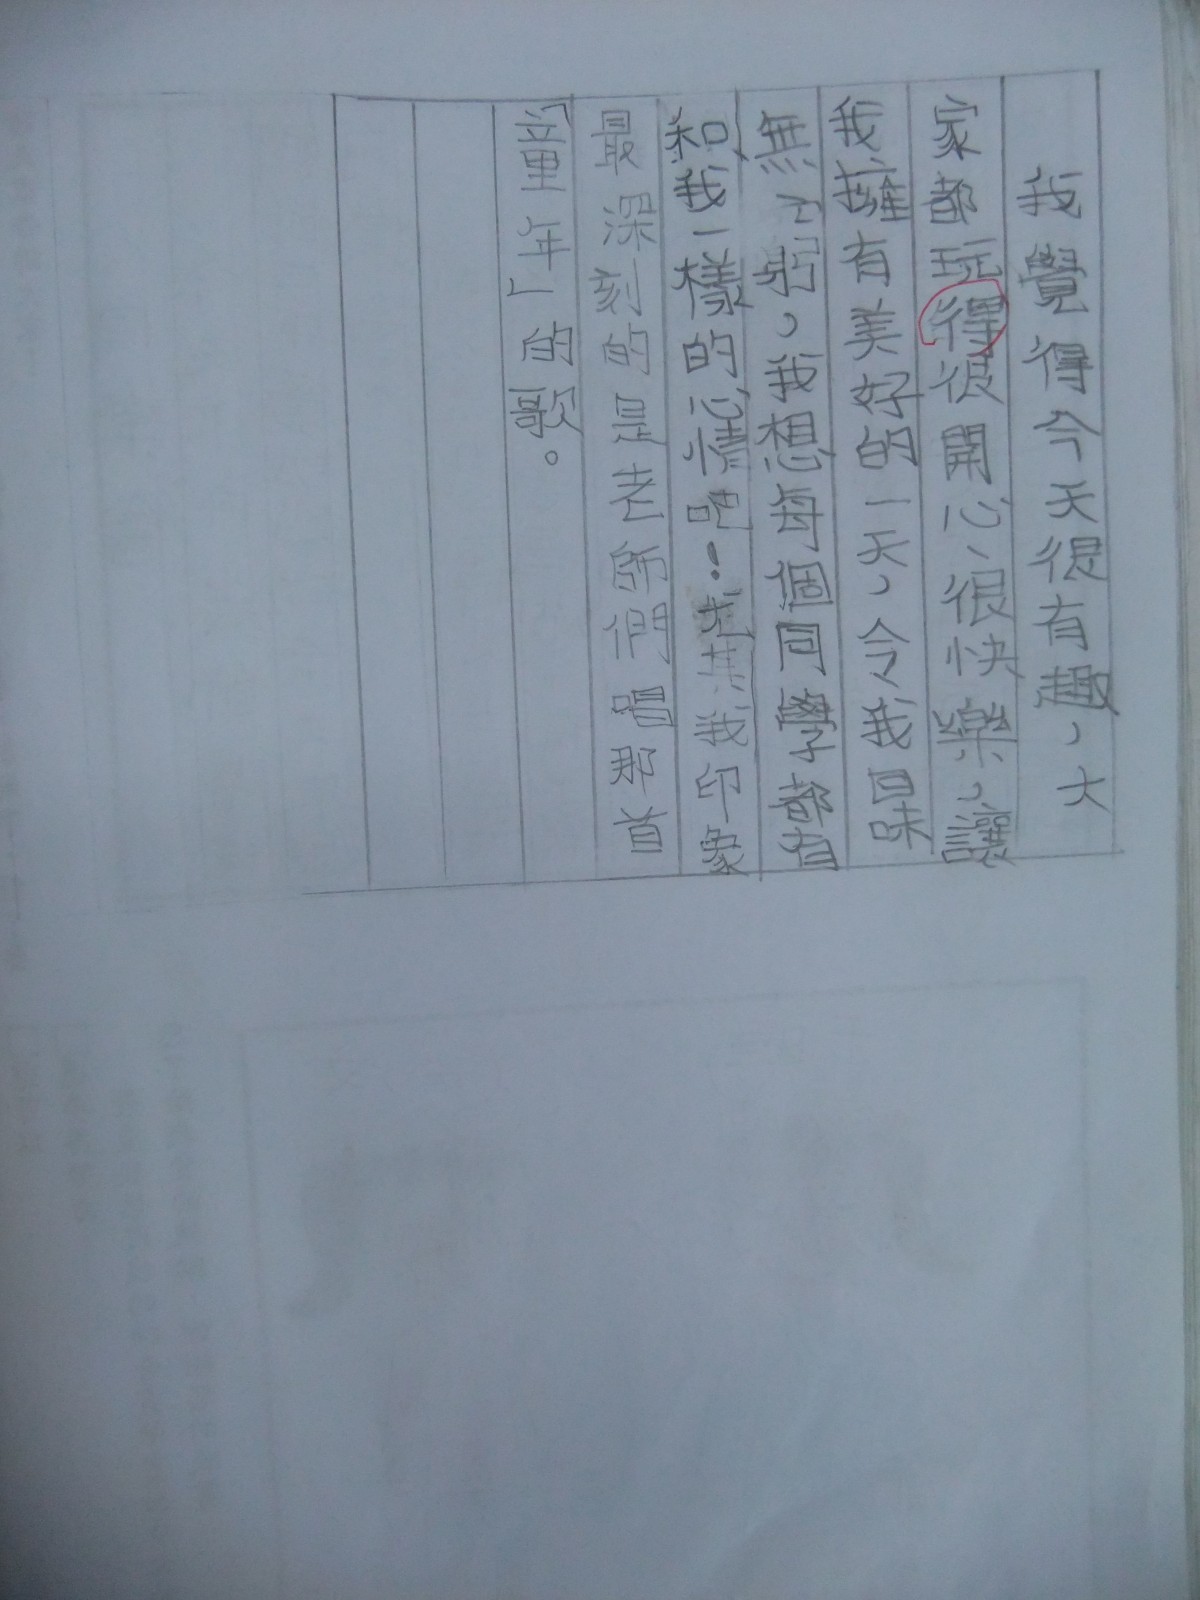 我覺得今天很有趣，大
家都玩得很開心、很快樂，讓
我擁有美好的一天，令我回味
無ㄑㄩㄥˊ，我想每個同學都有
和我一樣的心情吧！尤其我印象
最深刻的是老師們唱那首
「童年」的歌。